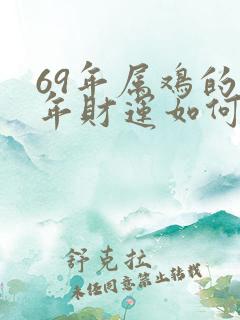 69年属鸡的
年财运如何
舒克拉
未经同意禁止转载